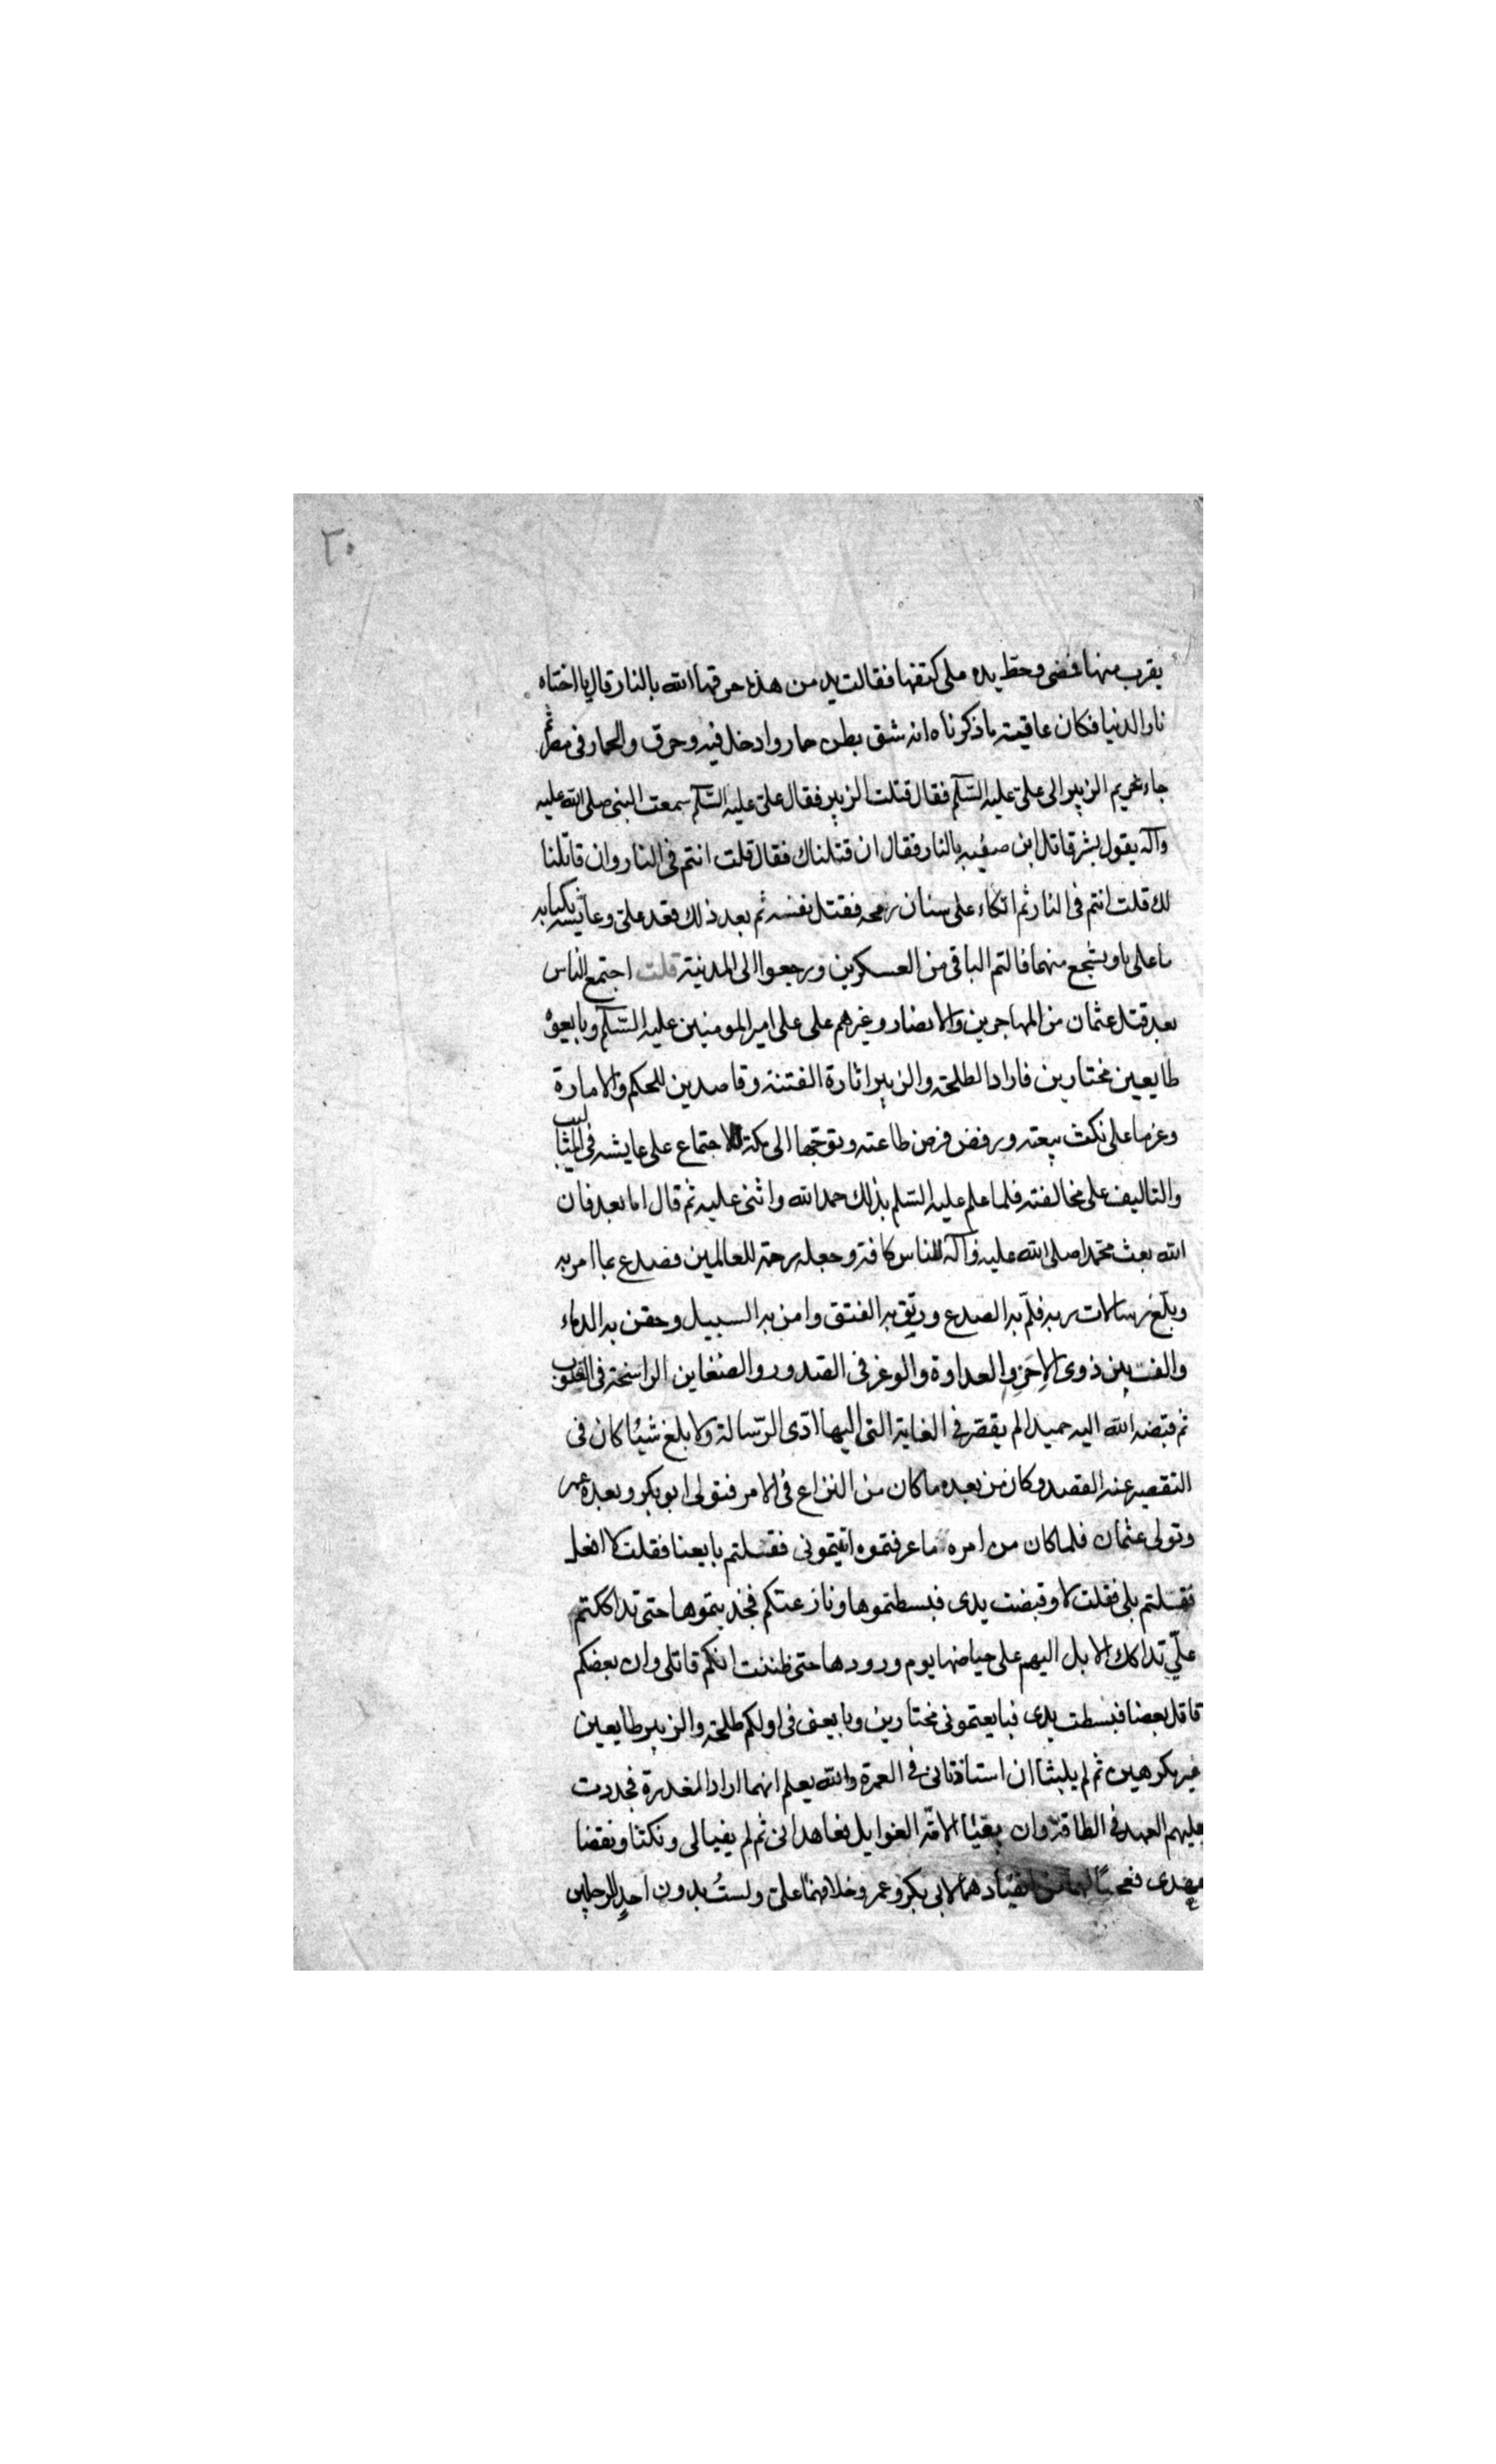 ٢٠
يقرب منها فمضى وحط يده على كتفها فقالت يد من هذه حرقها الله بالنار قال يا اختاه
نار الدنيا فكان عاقبته ما ذكرناه انه شق بطن حمار وادخل فيه وحرق والحمار فى مصر ثم
جاء غريم الزبير الى على عليه السّلم فقال قتلت الزبير فقال على عليه السّلم سمعت النبى صلى الله عليه
وآله يقول بشر قاتل ابن صفيه بالنار فقال ان قتلناك فقال قلت انتم فى النار وان قاتلنا
لك قلت انتم فى النار ثم اتكاء على سنان رمحه فقتل نفسه ثم بعد ذلك فقد على وعايشه
ما على ويشجع منهما فالتم الباقى من العسكرين ورجعوا الى المدنية قلت اجتمع الناس
بعد قتل عثمان من المهاجرين والانصار وغيرهم على على امير المومنين عليه السّلم وبايعوه
طايعين مختارين فارادا لطلحة والزبير اثارة الفتنة وقاصدين للحكم والامارة
وعزما على نكث بيعته ورفض فرض طاعته وتوجّها الى مكة للاجتماع على عايشه فى
والتاليف على مخالفته فلما علم عليه السّلم بذلك حمد الله واثنى عليه ثم قال اما بعد فان
الله بعث محمدا صلى الله عليه وآله للناس كافة وجعله رحمة للعالمين فصدع بما امر به
وبلّغ رسالات ربه فلمّ به الصدع ورتق به الفتق وامن به السبيل وحقن به الدماء
والف بين ذوى الاحن والعداوة والوغر فى الصدور والضغاين الراسخة فى القلوب
ثم قبضه الله اليه حميدا لم يقصّر فى الغاية التى اليها ادّى الرّسالة ولا بلغ شيئا كان فى
التقصير عنه القصد وكان من بعده ما كان من النزاع فى الامر فتولى ابو بكر وبعده عمر
وتولى عثمان فلما كان من امره ما عرفتموه اتيتمونى فقلتم بايعنا فقلت لا افعل
فقلتم بلى فقلت لا وقبضت يدى فبسطتموها ونازعتكم فجذبتموها حتى تداككتم
علىّ تداكك الابل الهيم على حياضها يوم ورودها حتى ظننت انكم قاتلى وان بعضكم
قاتل بعضا فبسطت يدى فبايعتمونى مختارين وبايعنى فى اولكم طلحة والزبير طايعين
غير مكرهين ثم لم يلبثا ان استاذنانى فى العمرة والله يعلم انهما ارادا الغدرة فجددت
عليهم العهد فى الطاقة وان الامّة الغوايل فعاهدانى ثم لم يفيا لى ونكثا ونقضا
عهدى فعجبًا لهما من انقيادهما لابى بكر وعمر وخلافهما على ولستُ بدون احد الرجلين